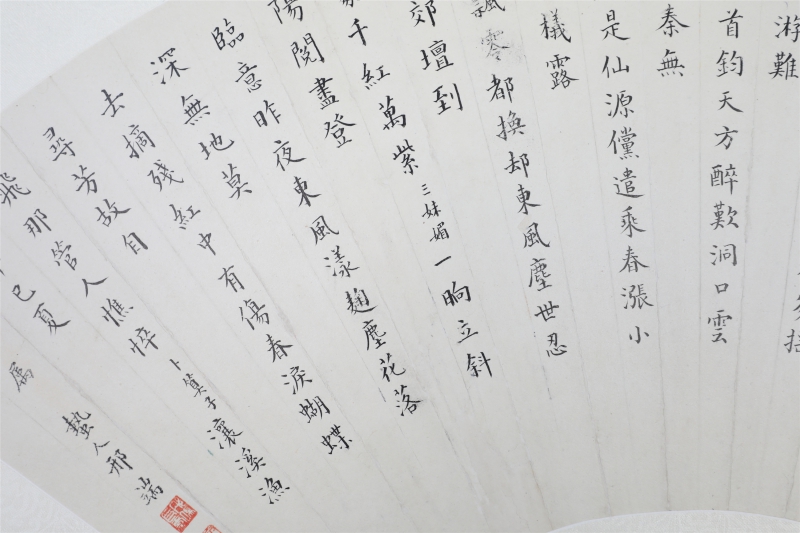 游難
首鈞天方醉歎洞口雲
秦無
是仙源儻遣乘春漲小
檥露
飄零都換却東風塵世忍
郊壇到
千紅萬紫三妹媚一晌立斜
陽閱盡登
臨意昨夜東風漾麹塵花落
深無地莫
去摘殘紅中有傷春淚蝴蝶
尋芳故自
飛那管人憔悴卜算子瀼溪漁
巳夏
屬
蟄人邢端